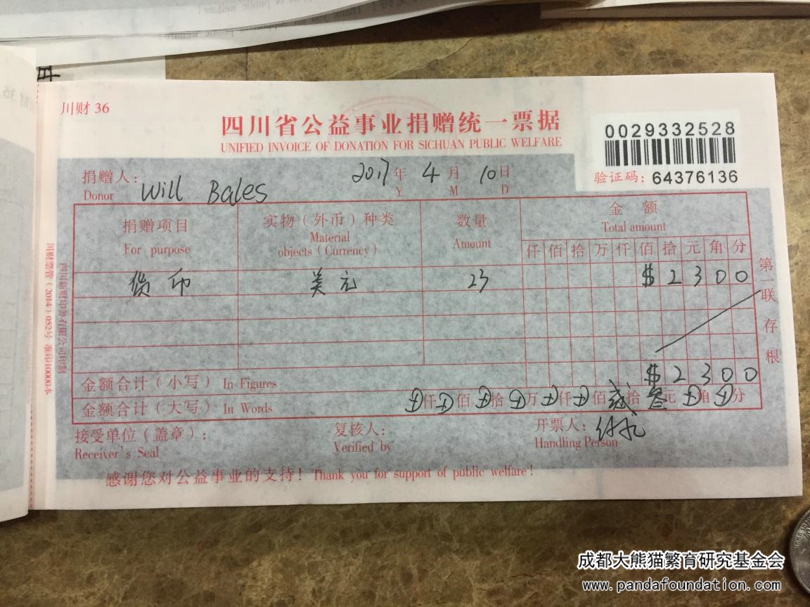 川财 36
四川省公益事业捐赠统一票据
UNIFIED INVOICE OF DONATION FOR SICHUAN PUBLIC WELFARE
0029332528
验证码: 64376136
捐赠人: Will Bales 2017 年 4 月 10 日
Donor Y M D
捐赠项目 实物（外币）种类 数量 金额
For purpose Material objects (Currency) Amount Total amount
仟 佰 拾 万 仟 佰 拾 元 角 分
货币 美元 23 $ 2 3 0 0
金额合计（小写） In Figures $ 2 3 0 0
金额合计（大写） In Words 仟 佰 拾 万 仟 佰 贰 拾 叁 元 角 分
接受单位（盖章）: 复核人: 开票人:
Receiver's Seal Verified by Handling Person
感谢您对公益事业的支持! Thank you for support of public welfare!
第 联 存根
成都大熊猫繁育研究基金会
www.pandafoundation.com